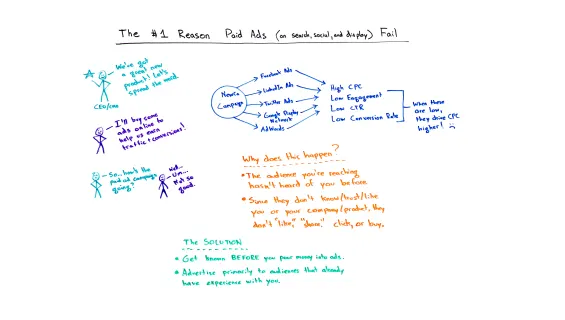 The #1 Reason Paid Ads (on search, social, and display) Fail
We've got
a great new
product! Let's
spread the word.
CEO/CMO
I'll buy some
ads online to
help us earn
traffic + conversions!
So... how's the
paid ad campaign
going?
Um...
Not so
good.
New
Campaign
Facebook Ads
LinkedIn Ads
Twitter Ads
Google Display
Network
AdWords
High CPC
Low Engagement
Low CTR
Low Conversion Rate
When these
are low,
they drive CPC
higher!
Why does this happen?
• The audience you're reaching
hasn't heard of you before.
• Since they don't know/trust/like
you or your company/product, they
don't "like," "share," click, or buy.
The SOLUTION
• Get known BEFORE you pour money into ads.
• Advertise primarily to audiences that already
have experience with you.